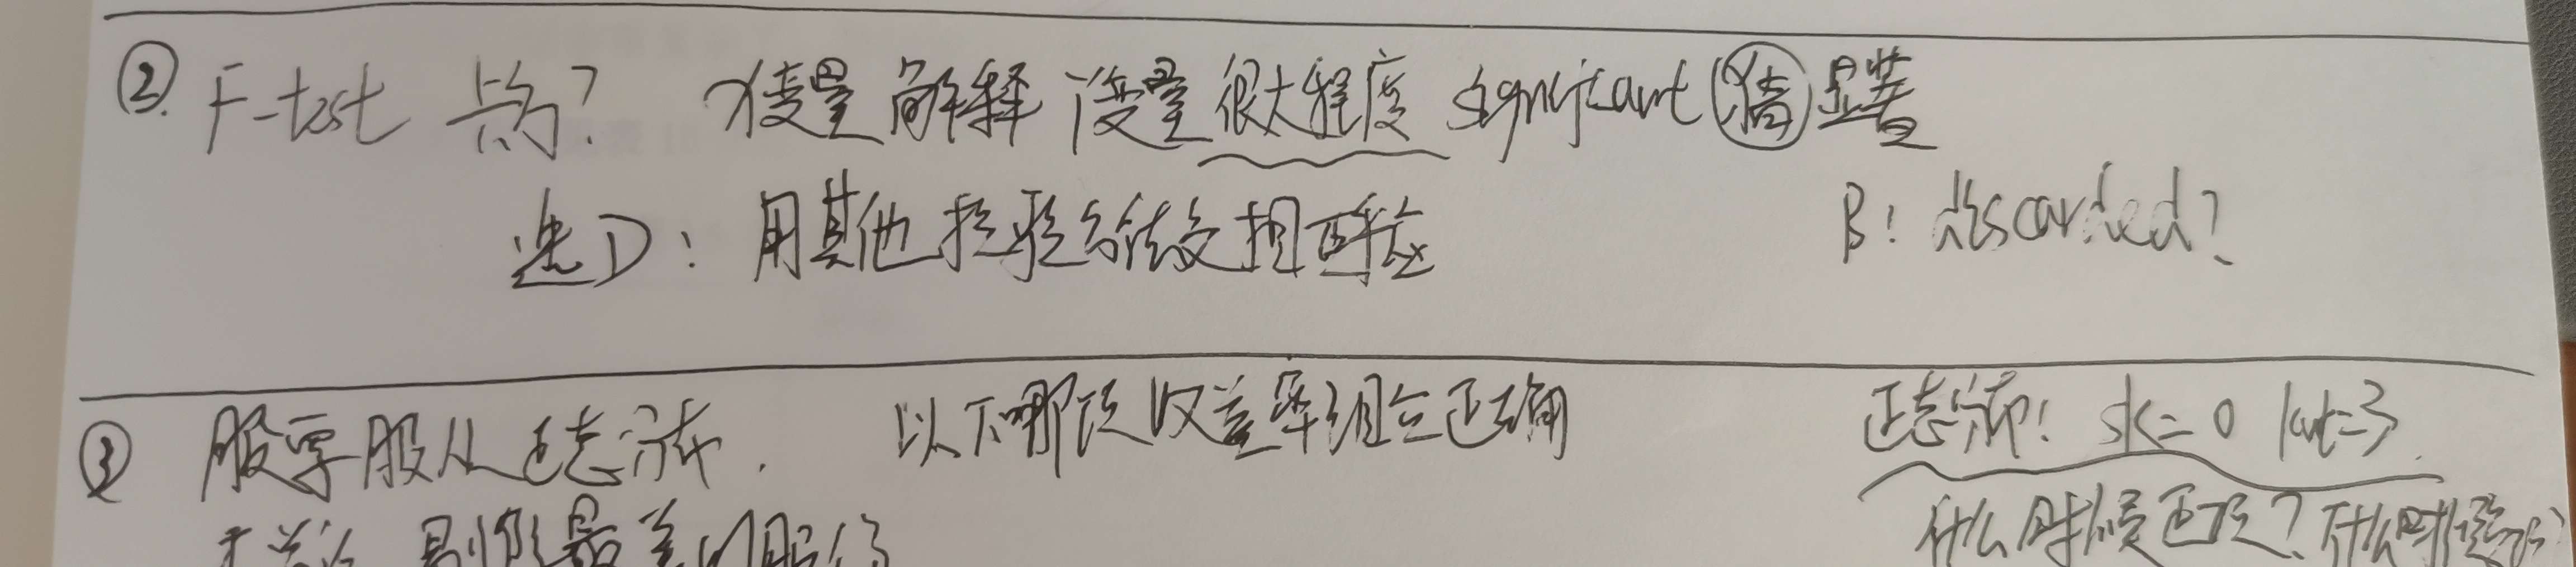 ② F-test 点的？ x变量解释Y变量很大程度 significant 猜 显著
选D：用其他检验 相
B：discarded？
③ 股票服从正态分布． 以下哪段收益率组合正确
正态分布：sk=0 kut=3
剔除最差的股
什么时候正？什么时候